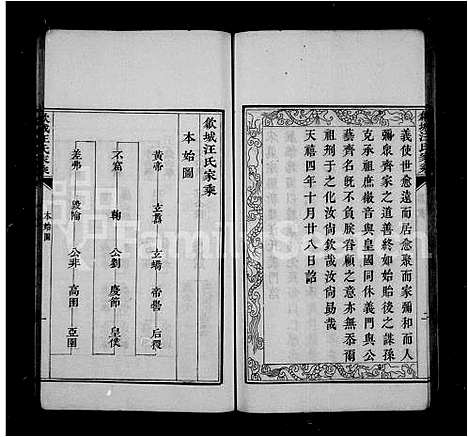 義使世愈遠而居愈聚而家彌和而
彌泉齊家之道善終如始貽後之謀孫
克承祖庶徽音與皇國同休義門與公
藝齊名既不負朕眷顧之意亦無忝爾
祖刑于之化汝尚欽哉汝尚勗哉
天禧四年十月廿八日詔
歙城汪氏家乘
歙城汪氏家乘
本始圖
黃帝 玄囂 玄蟜 帝嚳 后稷
不窋 鞠 公劉 慶節 皇僕
差弗 毀隃 公非 高圉 亞圉
歙城汪氏家乘
本始圖
一